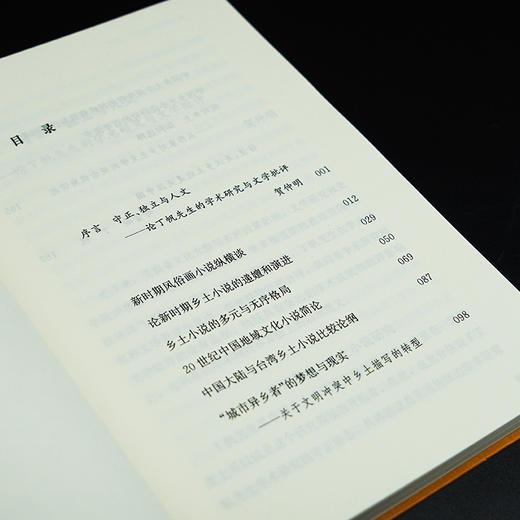 目 录
序言 守正、独立与人文
——论丁帆先生的学术研究与文学批评 贺仲明 001
新时期风俗画小说纵横谈 012
论新时期乡土小说的递嬗和演进 029
乡土小说的多元与无序格局 050
20世纪中国地域文化小说简论 069
中国大陆与台湾乡土小说比较论纲 087
“城市异乡者”的梦想与现实
——关于文明冲突中乡土描写的转型 098